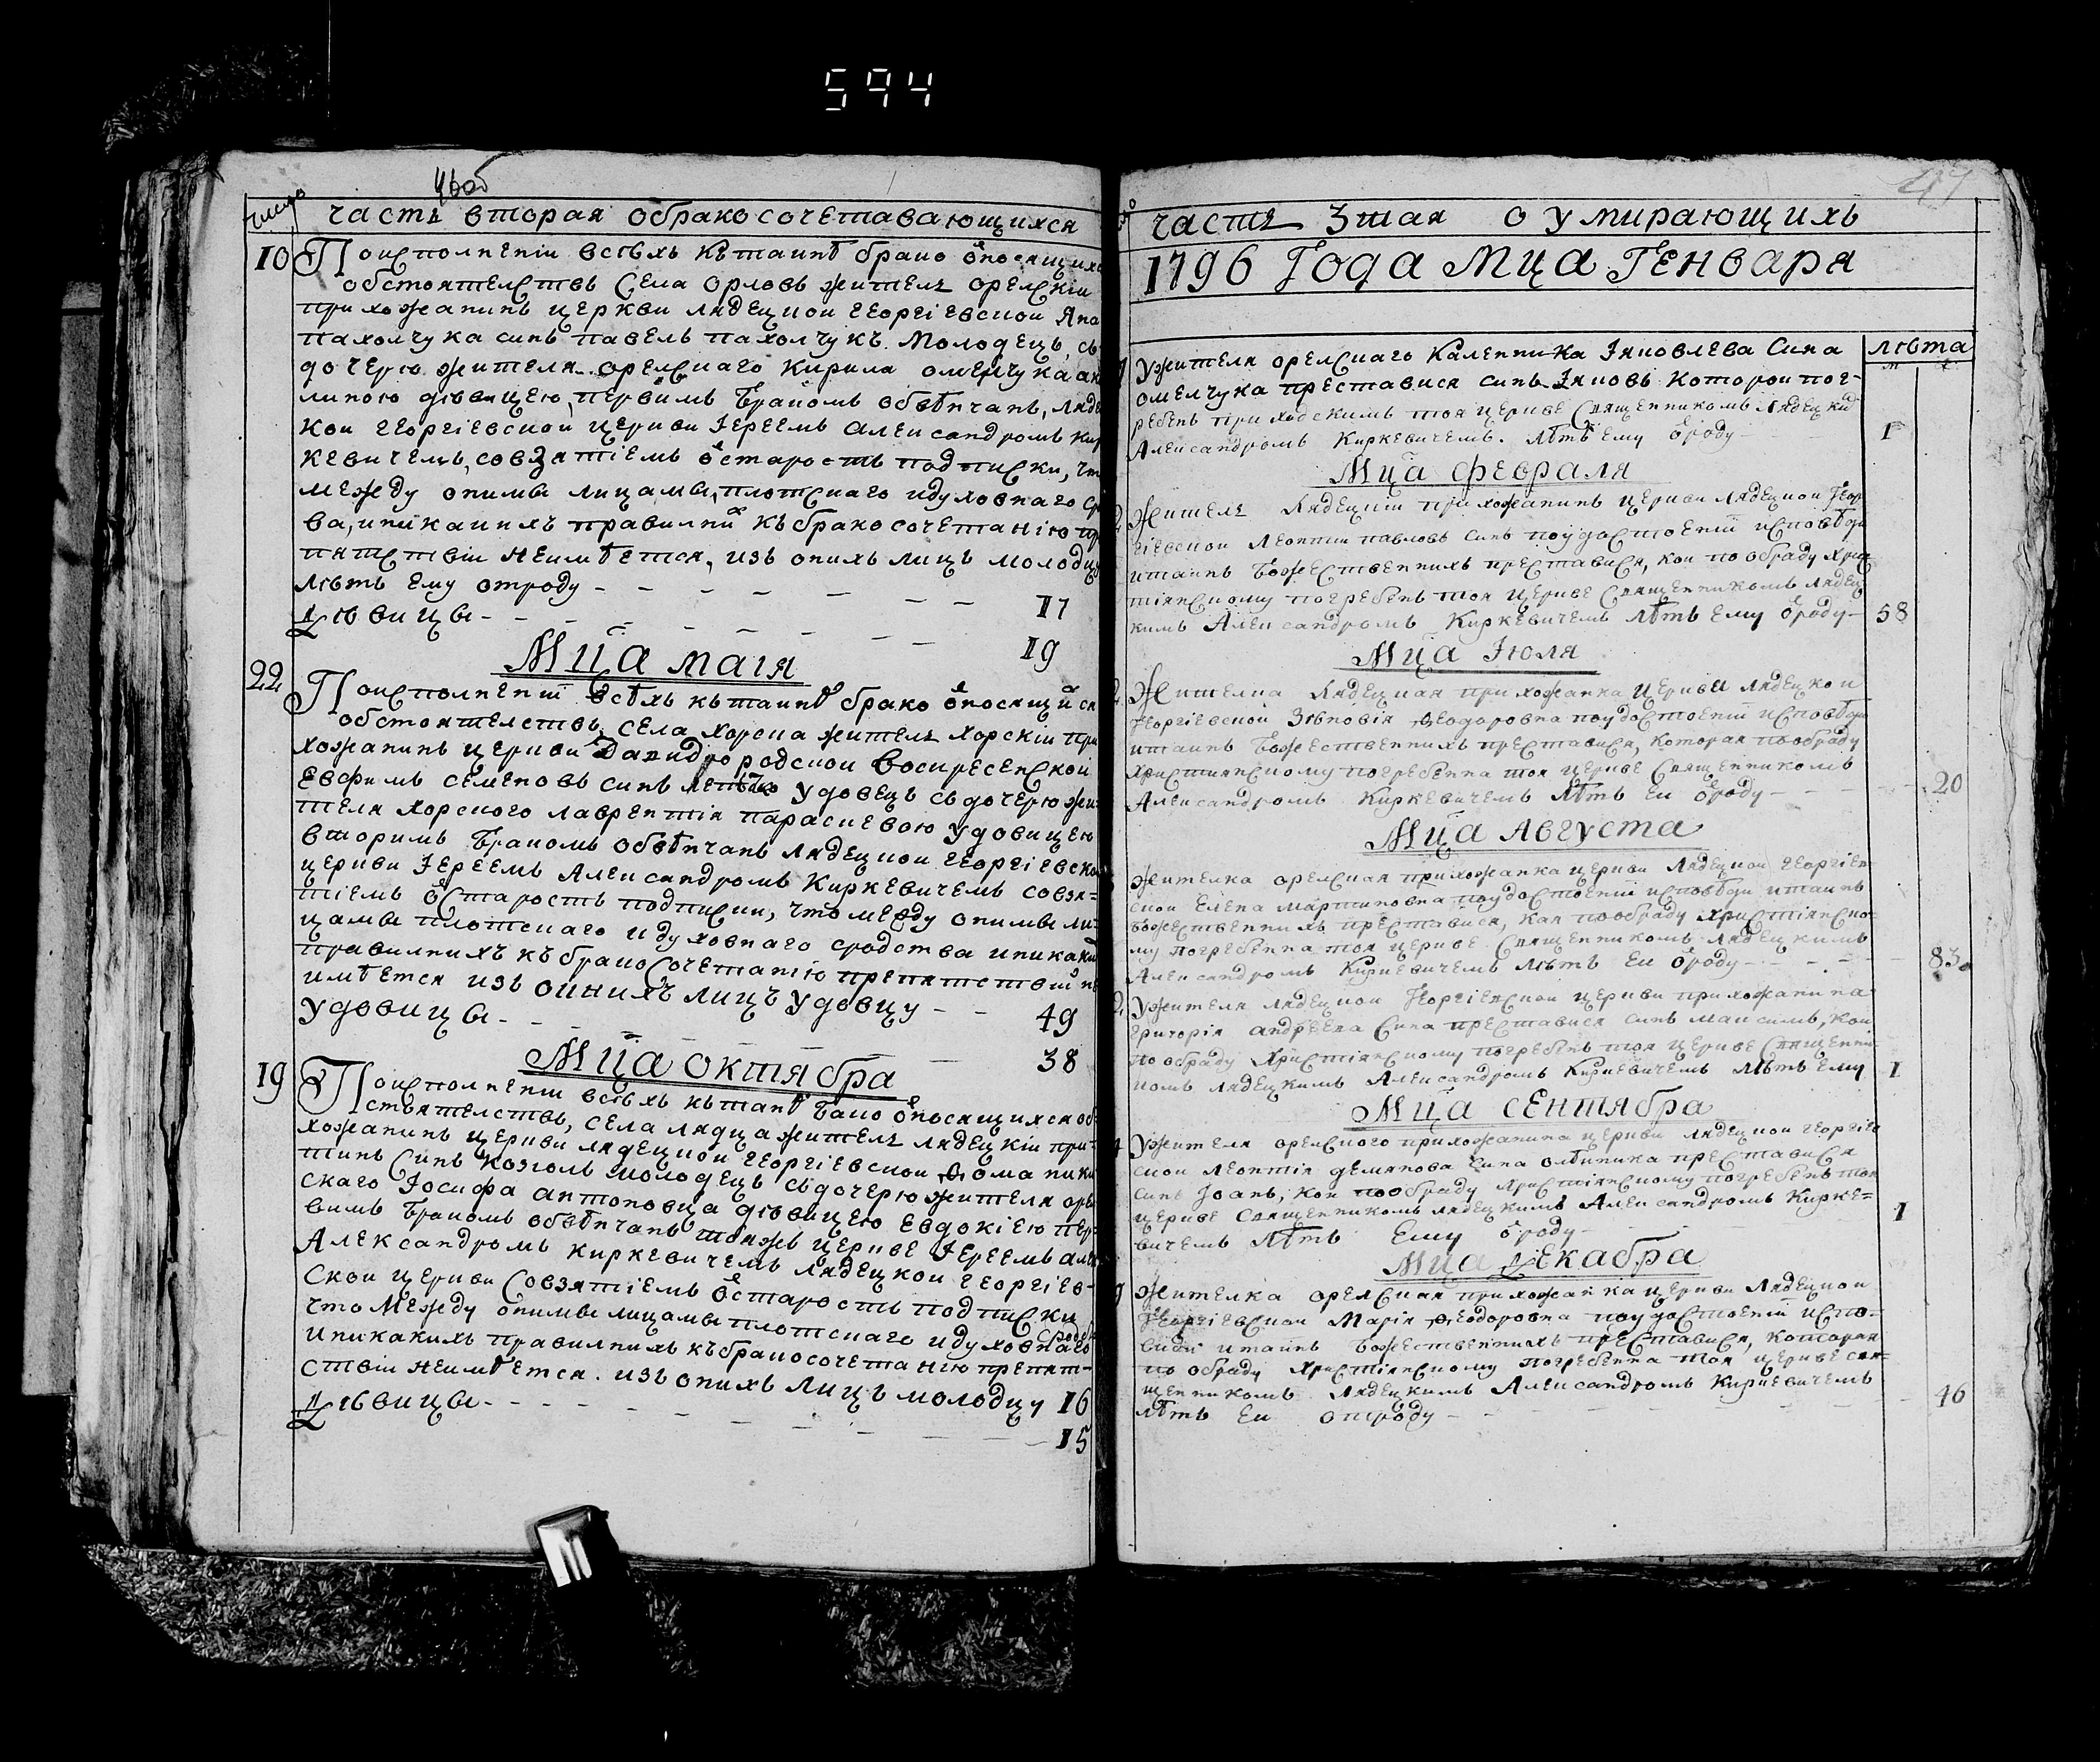 594
46об
число
часть вторая обракосочетавающихся
10 Поисполненіи всѣхъ къ таинѣ брако относящихс
обстоятелствъ Села орловъ жителъ орелскіи
прихожанинъ церкви лядецкои георгіевскои
пахолчука синъ павелъ пахолчукъ. Молодецъ, съ
дочерю жителя орелскаго Кирила омелчука
линою дѣвицею, первимъ бракомъ обвѣнчанъ,
кои георгіевскои церкви Іереемъ александромъ Кир
кевичемъ, совзятіемъ отстарость подписки, что
между онимы лицамы, плотскаго идуховнаго ср
ва, иникакихъ правилних къ бракосочетанію пр
пятствіи неимѣется, изъ онихъ лицъ молодцу
лѣтъ ему отроду - - - - - - 17
Дѣвицы - - - - - - - 19
Мца маія
22 Поисполненіи всѣхъ къ таинѣ брако относящихся
обстоятелствъ, села хорска жителъ хорскіи при
хожанинъ церкви Давидгородскои воскресенскои
евфимъ семеновъ синъ удовецъ съ дочерю жи=
теля хорского лаврентія параскевою удовицею
вторимъ бракомъ обвѣнчанъ лядецкои георгіевско
церкви Іереемъ Александромъ Киркевичемъ совзя=
тіемъ отстарость подписки, что между онимы ли=
цамы плотскаго идуховнаго сродства иникаки
правилнихъ къ бракосочетанію препятствіи не
имѣется изъ онихъ лицъ удовцу - - 49
удовицы - - - - - - - 38
Мца октября
19 Поисполненіи всѣхъ къ таинѣ брако относящихся об=
стоятелствъ, села лядца жителъ лядецкіи при=
хожанинъ церкви лядецкои георгіевскои Ѳома ники
тинъ Синъ козголь молодецъ съдочерю жителя оре
скаго Іосифа антоновца дѣвицею Евдокіею пер=
вимъ бракомъ обвѣнчанъ тояжъ церкве Іереемъ
Александромъ киркевичемъ лядецкои георгіев=
скои церкви Совзятіемъ отстарость подписки
что Между онимы лицамы плотскаго идуховнаго Сродс
иникакихъ правилнихъ къ бракосочетанію препят=
ствіи неимѣется. изъ онихъ лицъ молодцу 16
Дѣвицы - - - - - - - 15
47
часть 3тая о умирающихъ
1796 Года Мца Генваря
лѣта
Ужителя орелскаго Каленника Іяковлева Сина
омелчука преставися синъ Іяковъ которои пог=
ребенъ приходскимъ тоя церкве Священникомъ Лядецким
Александромъ Киркевичемъ. лѣтъ ему отроду - 1
Мца февраля
Жителъ Лядецкіи прихожанинъ церкви Лядецкои Геор
гіевскои Леонтіи павловъ синъ поудостоеніи исповѣди
итаинъ Божественнихъ преставися, кои по обряду хрис
тіянскому погребенъ тоя церкве Священникомъ лядец
кимъ Александромъ Киркевичемъ лѣтъ ему отроду - 58
Мца Іюля
Жителка Лядецкая прихожанка церкви Лядецкои
Георгіевскои Зѣновія Ѳеодоровна поудостоеніи исповѣди
итаинъ Божественнихъ преставися, которая пообряду
христіянскому погребенна тоя церкве Священникомъ
Александромъ Киркевичемъ лѣтъ еи отроду - - 20
Мца Августа
Жителка орелская прихожанка церкви Лядецкои георгіев=
скои Елена мартиновна поудостоеніи исповѣди итаинъ
Божественнихъ преставися, кая пообряду христіянско=
му погребенна тоя церкве Священникомъ лядецкимъ
Александромъ Киркевичемъ лѣтъ еи отроду - - - 83
Ужителя лядецкои Георгіевскои церкви прихожанина
григорія андреева Сина преставися синъ максимъ, кои
по обряду христіянскому погребенъ тоя церкве Священни=
комъ лядецкимъ Александромъ Киркевичемъ лѣтъ ему 1
Мца сентября
Ужителя орелского прихожанина церкви лядецкои георгіев
скои леонтія демянова сина преставися
синъ Іоанъ, кои пообряду христіянскому погребенъ тоя
церкве Священникомъ лядецкимъ Александромъ Кирке=
вичемъ лѣтъ Ему отроду - 1
Мца Декабра
Жителка орелская прихожанка церкви Лядецкои
Георгіевскои Марія Ѳеодоровна поудостоеніи испо=
види итаинъ Божественнихъ преставися, которая
по обряду христіянскому погребенна тоя церкве свя=
щенникомъ лядецкимъ Александромъ Киркевичемъ
лѣтъ еи отроду - - - - 46